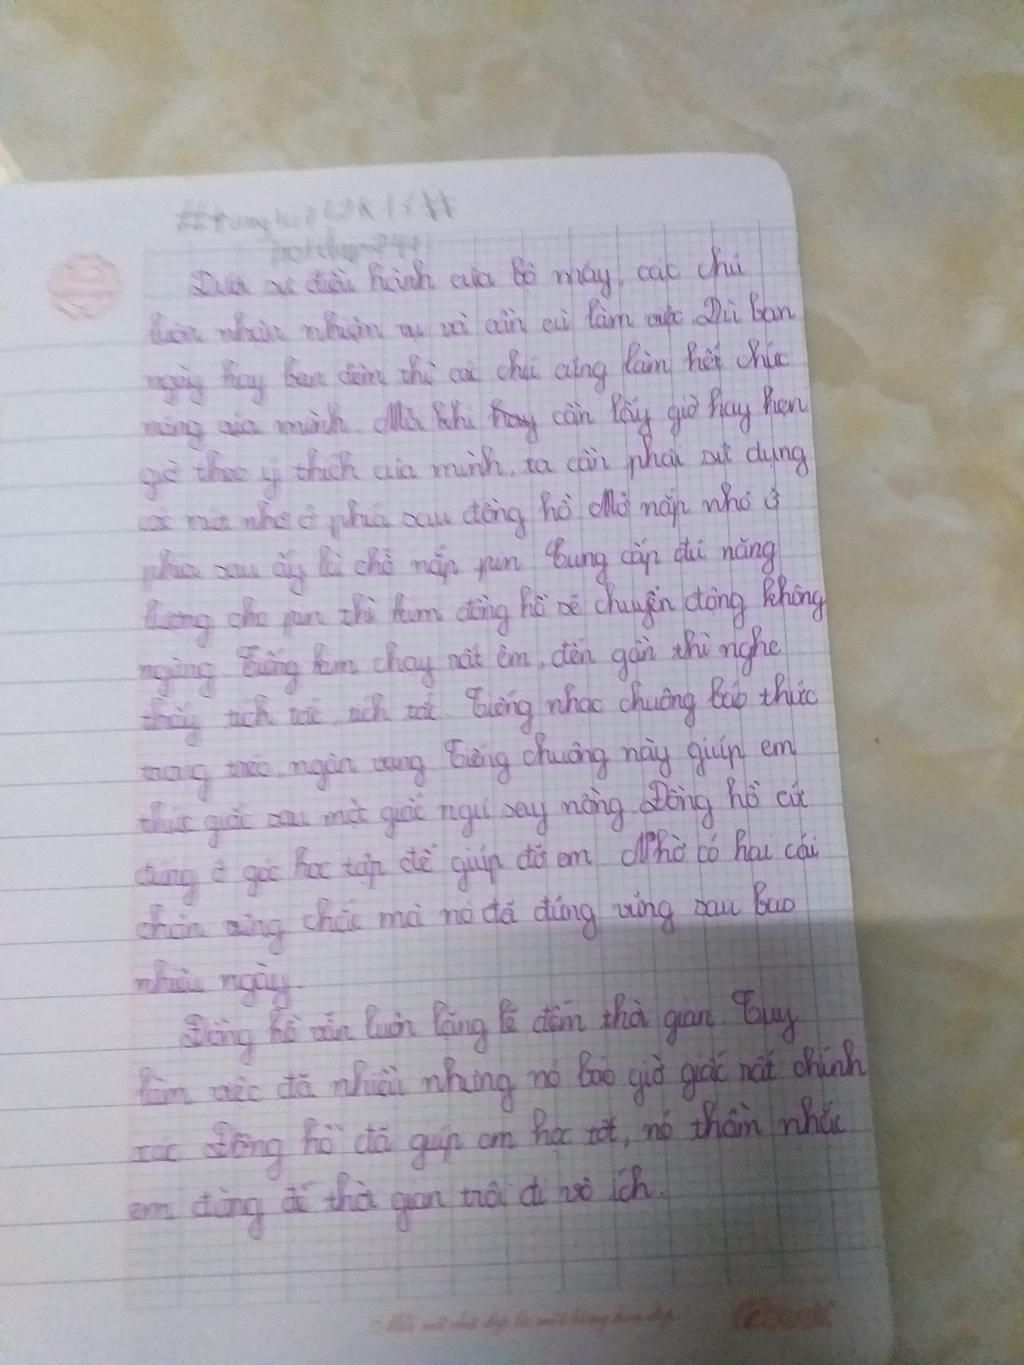 Dưới sự điều hành của bộ máy, các chú
luôn nhận nhiệm vụ và cần cù làm việc. Dù ban
ngày hay ban đêm thì các chú cũng làm hết chức
năng của mình. Mỗi khi hay cần lấy giờ hay hẹn
giờ theo ý thích của mình, ta cần phải sử dụng
các nút nhỏ ở phía sau đồng hồ. Mở nắp nhỏ ở
phía sau ấy là chỗ nắp pin. Cung cấp đủ năng
lượng cho pin thì kim đồng hồ sẽ chuyển động không
ngừng. Tiếng kim chạy rất êm, đến gần thì nghe
thấy tích tắc, tích tắc. Tiếng nhạc chuông báo thức
trong trẻo, ngân vang. Tiếng chuông này giúp em
thức giấc sau một giấc ngủ say nồng. Đồng hồ cứ
đứng ở góc học tập để giúp đỡ em. Nhờ có hai cái
chân vững chắc mà nó đã đứng vững sau bao
nhiêu ngày.
Đồng hồ vẫn luôn lặng lẽ đếm thời gian. Tuy
làm việc đã nhiều nhưng nó báo giờ giấc rất chính
xác. Đồng hồ đã giúp em học tốt, nó thầm nhắc
em đừng để thời gian trôi đi vô ích.